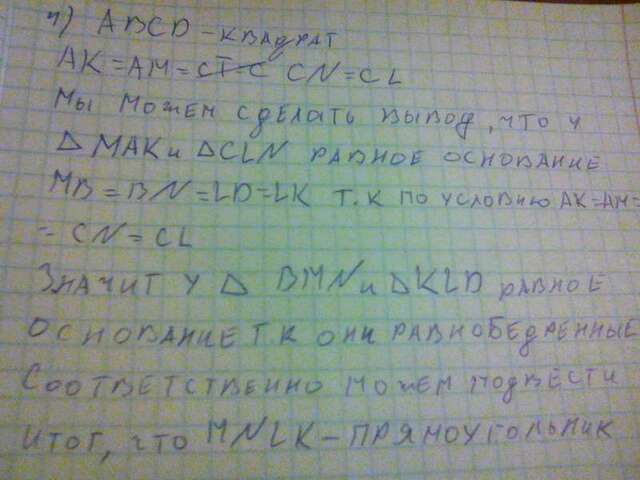 4) ABCD - КВАДРАТ
AK = AM = CN = CL
МЫ МОЖЕМ СДЕЛАТЬ ВЫВОД, ЧТО У
△ MAK и △CLN РАВНОЕ ОСНОВАНИЕ
MB = BN = LD = LK Т.К ПО УСЛОВИЮ AK = AM =
= CN = CL
ЗНАЧИТ У △ BMN и △KLD РАВНОЕ
ОСНОВАНИЕ Т.К ОНИ РАВНОБЕДРЕННЫЕ
СООТВЕТСТВЕННО МОЖЕМ ПОДВЕСТИ
ИТОГ, ЧТО MNLK - ПРЯМОУГОЛЬНИК